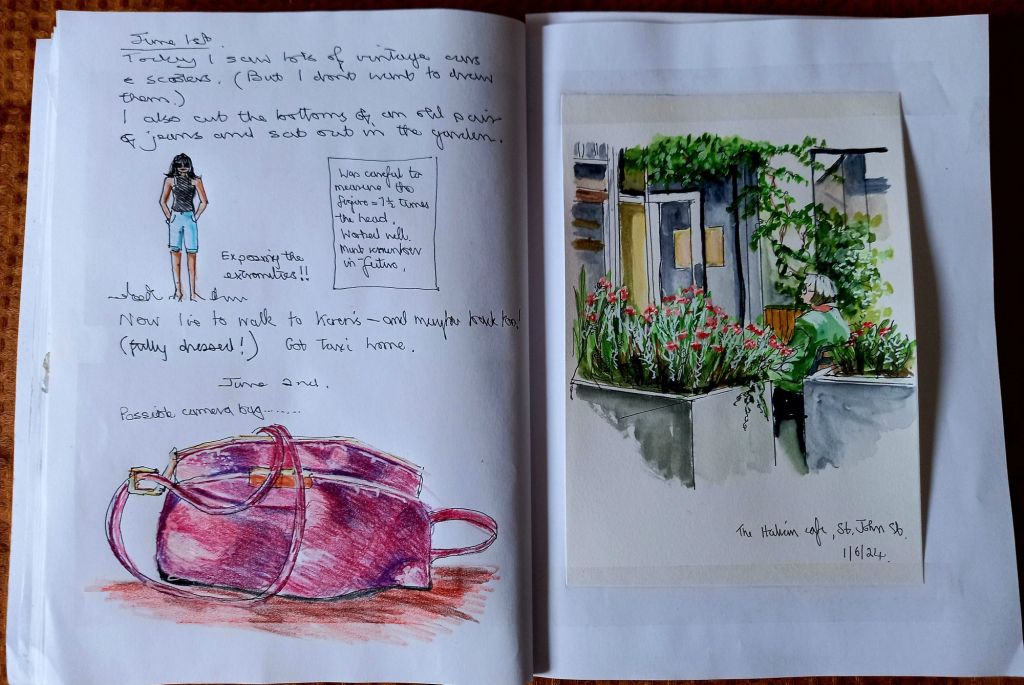 June 1st
Today I saw lots of vintage cars
& scooters. (But I don't want to draw
them.)
I also cut the bottoms of an old pair
of jeans and sat out in the garden.
Was careful to
measure the
figure = 7½ times
the head.
Worked well.
Must remember
in future.
Exposing the
extremities!!
Now I've to walk to Karen's – and maybe back too!
(fully dressed!) Got Taxi home.
June 2nd.
Possible camera bag........
The Italian cafe, St. John St.
1/6/24.